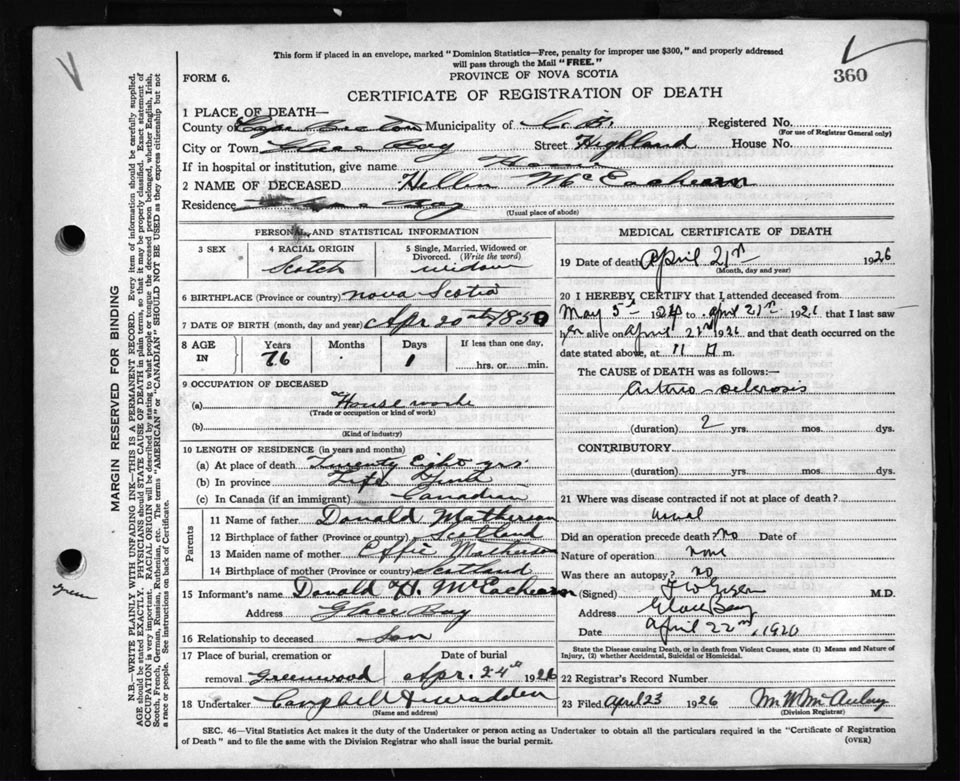 This form if placed in an envelope, marked "Dominion Statistics—Free, penalty for improper use $300," and properly addressed
will pass through the Mail "FREE."
360
FORM 6.
PROVINCE OF NOVA SCOTIA
CERTIFICATE OF REGISTRATION OF DEATH
1 PLACE OF DEATH—
County of Cape Breton Municipality of C. B. Registered No.
(For use of Registrar General only)
City or Town Glace Bay Street Highland House No.
If in hospital or institution, give name Home
2 NAME OF DECEASED Hellen McEachearn
Residence Bay
(Usual place of abode)
PERSONAL AND STATISTICAL INFORMATION
3 SEX
4 RACIAL ORIGIN
Scotch
5 Single, Married, Widowed or
Divorced. (Write the word)
widow
6 BIRTHPLACE (Province or country) Nova Scotia
7 DATE OF BIRTH (month, day and year) Apr 20 1850
8 AGE
IN
Years
76
Months
Days
1
If less than one day,
hrs. or min.
9 OCCUPATION OF DECEASED
(a) House work
(Trade or occupation or kind of work)
(b)
(Kind of industry)
10 LENGTH OF RESIDENCE (in years and months)
(a) At place of death Twenty Eight yrs
(b) In province Life Time
(c) In Canada (if an immigrant) Canadian
Parents
11 Name of father Donald
12 Birthplace of father (Province or country) Scotland
13 Maiden name of mother Effie
14 Birthplace of mother (Province or country) Scotland
15 Informant's name Donald H. McEachearn
Address Glace Bay
16 Relationship to deceased Son
17 Place of burial, cremation or
removal Greenwood
Date of burial
Apr. 24th 1926
18 Undertaker Campbell & Wadden
(Name and address)
MEDICAL CERTIFICATE OF DEATH
19 Date of death April 21st 1926
(Month, day and year)
20 I HEREBY CERTIFY that I attended deceased from
May 5th 1924 to April 21st 1926 that I last saw
her alive on April 1926 and that death occurred on
the date stated above, at 11 m.
The CAUSE of DEATH was as follows:—
Arterio-sclerosis
(duration) 2 yrs. mos. dys.
CONTRIBUTORY
(duration) yrs. mos. dys.
21 Where was disease contracted if not at place of death?
Did an operation precede death? No Date of
Nature of operation None
Was there an autopsy? no
(Signed) M.D.
Address Glace Bay
Date April 22nd, 1926
State the Disease causing Death, or in death from Violent Causes, state (1) Means and Nature of
Injury, (2) whether Accidental, Suicidal or Homicidal.
22 Registrar's Record Number
23 Filed April 23 1926
(Division Registrar)
SEC. 46—Vital Statistics Act makes it the duty of the Undertaker or person acting as Undertaker to obtain all the particulars required in the "Certificate of Registration
of Death" and to file the same with the Division Registrar who shall issue the burial permit.
(OVER)
MARGIN RESERVED FOR BINDING
N.B.—WRITE PLAINLY WITH UNFADING INK—THIS IS A PERMANENT RECORD. Every item of information should be carefully supplied.
AGE should be stated EXACTLY. PHYSICIANS should STATE CAUSE OF DEATH in plain terms, so that it may be properly classified. Exact statement of
OCCUPATION is very important. RACIAL ORIGIN will be described by stating to what people or tongue the deceased person belonged, whether English, Irish,
Scotch, French, German, Russian, Ruthenian, etc. The terms "AMERICAN" or "CANADIAN" SHOULD NOT BE USED as they express citizenship but not
a race or people. See instructions on back of Certificate.